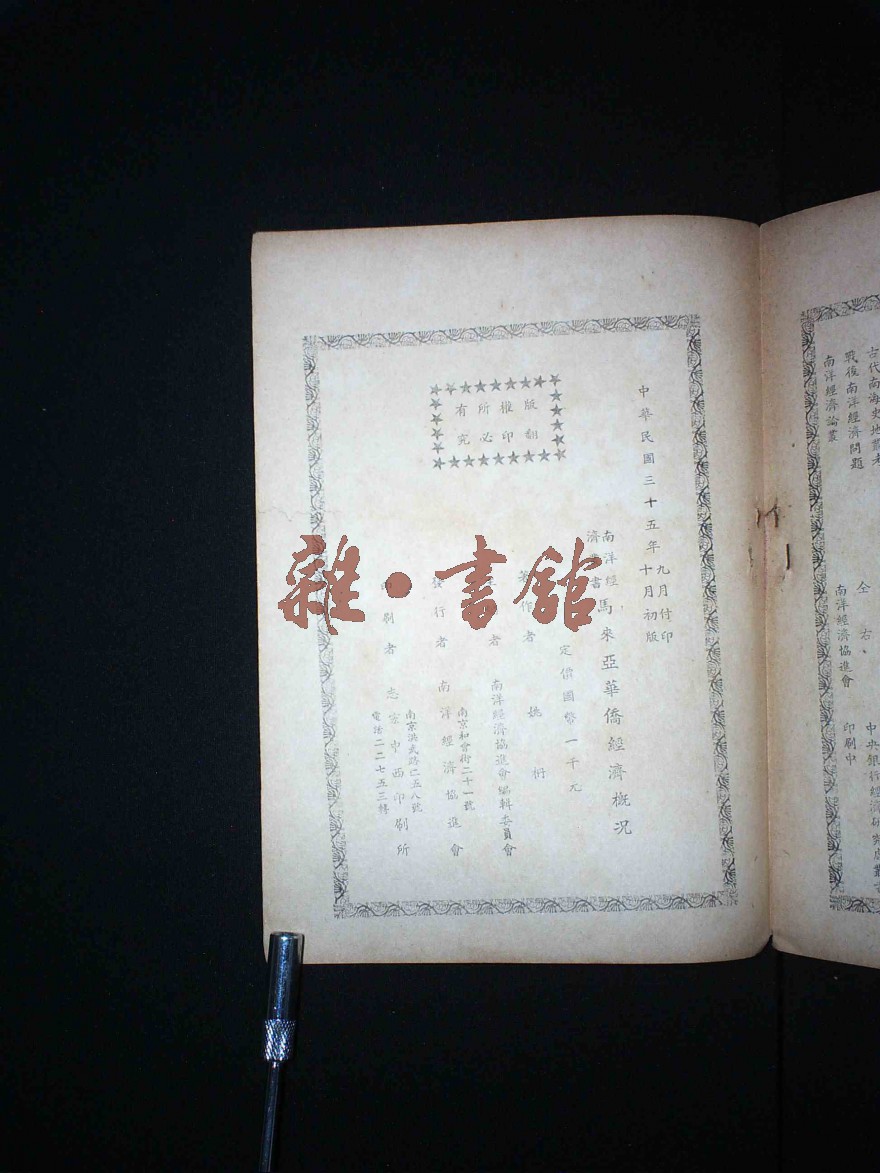 中華民國三十五年
九月付印
十月初版
版權所有
翻印必究
南洋經
濟叢書
馬來亞華僑經濟概況
定價國幣一千元
著作者 姚枬
者 南洋經濟協進會編輯委員會
發行者 南洋經濟協進會
南京和會街二十一號
刷者 中西印刷所
南京洪武路二五八號
電話二二七五三轉
雜·書館
古代南海史地叢考
戰後南洋經濟問題
南洋經濟論叢
仝右
南洋經濟協進會
印刷中
中央銀行經濟研究處叢書